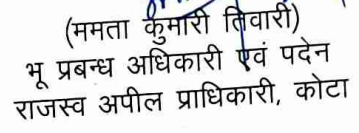 (ममता कुमारी तिवारी)
भू प्रबन्ध अधिकारी एवं पदेन
राजस्व अपील प्राधिकारी, कोटा